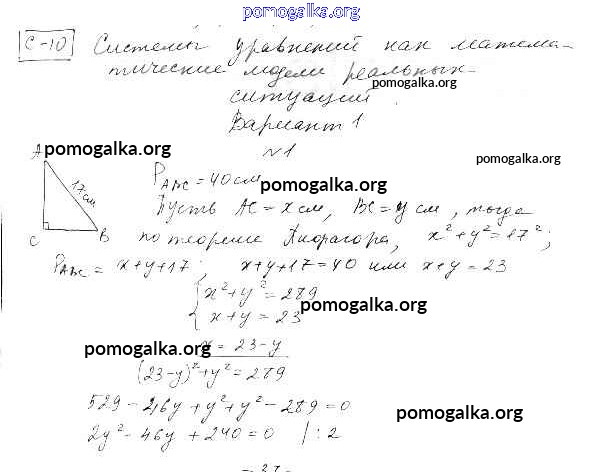 pomogalka.org
С-10 Системы уравнений как матема-
тические модели реальных
pomogalka.org
ситуаций
Вариант 1
№1
pomogalka.org
pomogalka.org
A
17см
C
B
P_ABC = 40 см
pomogalka.org
Пусть AC = x см, BC = y см, тогда
по теореме Пифагора, x² + y² = 17²;
P_ABC = x+y+17; x+y+17=40 или x+y=23
{ x²+y²=289
{ x+y=23
pomogalka.org
pomogalka.org
x = 23-y
(23-y)²+y²=289
529 - 46y + y² + y² - 289 = 0
pomogalka.org
2y² - 46y + 240 = 0 /:2